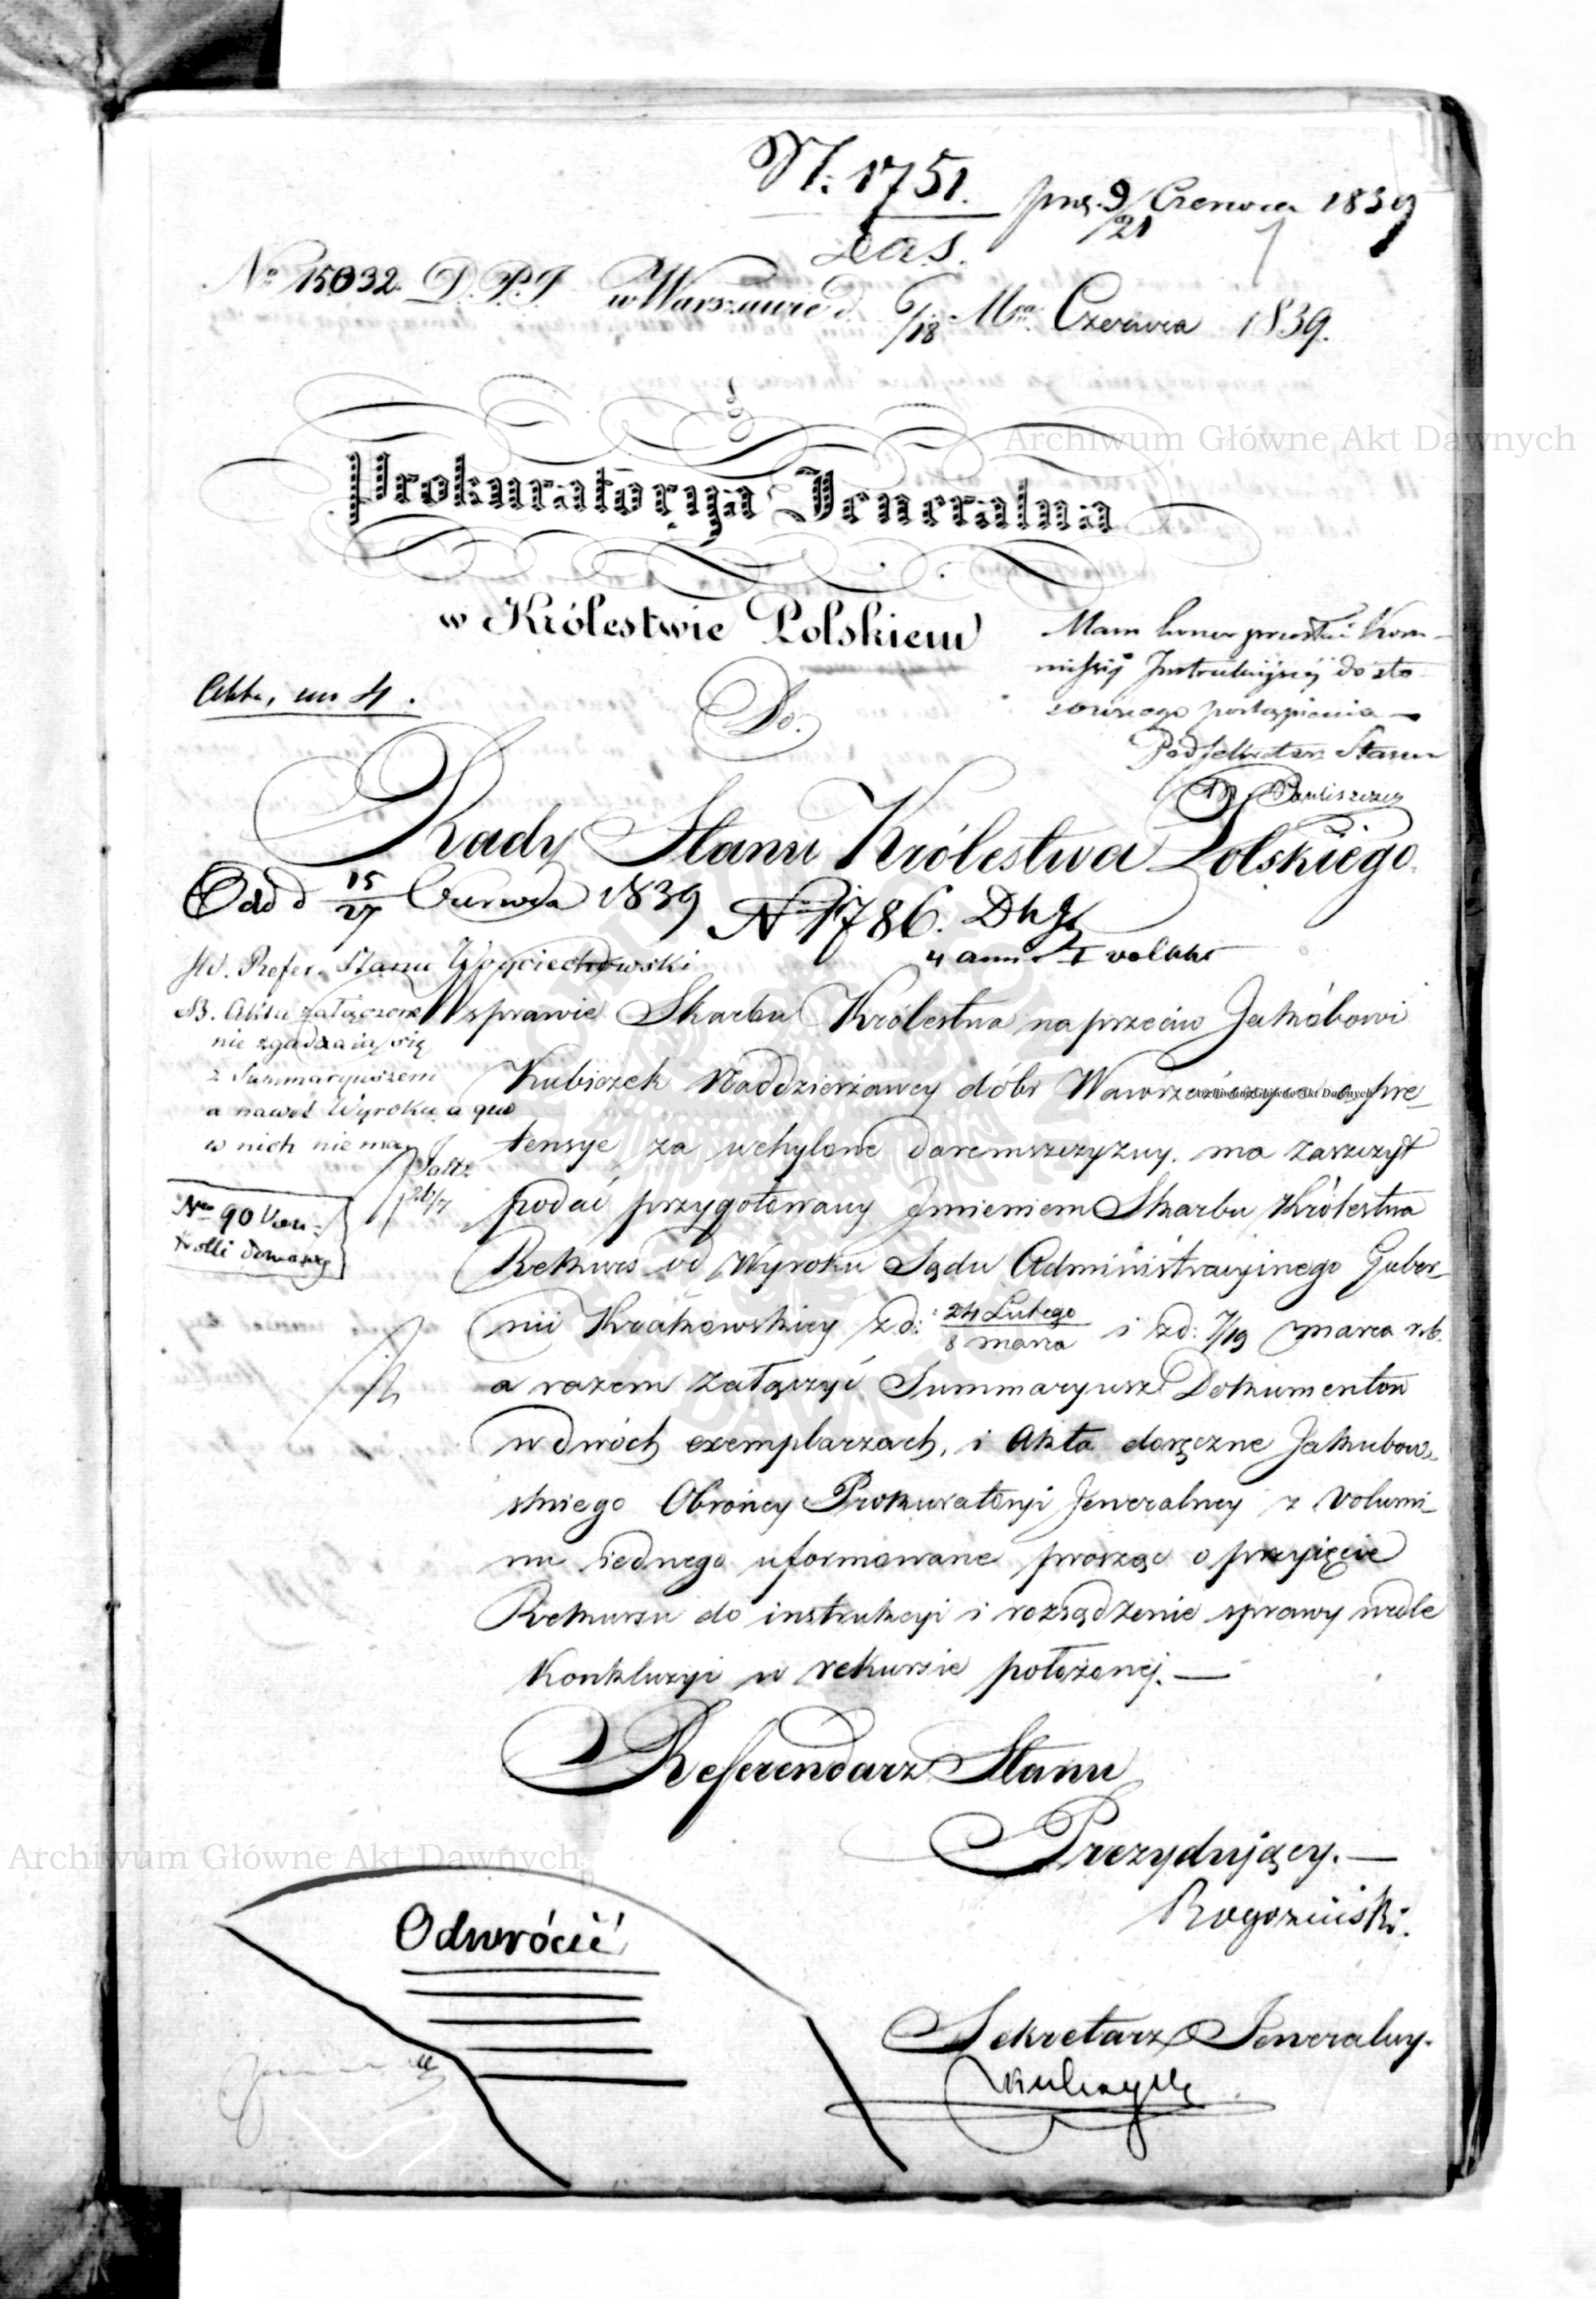 N: 1751. prez. 9/21 Czerwca 1839
Das.
No 15032. D.P.J w Warszawie d. 6/18 Mca Czerwca 1839.
Prokuratorya Jeneralna
w Królestwie Polskiem
Mam honor przesłać Kom-
missyi Instrukcyjnej do sto-
sownego postąpienia —
Podsekretarz Stanu
Do.
Rady Stanu Królestwa Polskiego.
Odd d 15/27 Czerwca 1839 N 1786.
4 ann
JW. Refer. Stanu Woyciechowski
NB. Akta załączone
nie zgadzaią się
z Summaryuszem
a nawet Wyroku a quo
w nich nie ma
26/7
Nro 90 Kon-
trolli
W sprawie Skarbu Królestwa naprzeciw Jakóbowi
Kubiczek Naddzierżawcy dóbr o pre-
tensye za uchylone daremszczyzny. ma zaszczyt
podać przygotowany Jmieniem Skarbu Królestwa
Rekurs od Wyroku Sądu Administracyinego Guber-
nii Krakowskiey z d: 24 Lutego/8 marca i z d: 7/19 marca r.b.
a razem załączyć Summaryusz Dokumentow
w dwóch exemplarzach, i Akta doręczne Jakubow-
skiego Obrońcy Prokuratoryi Jeneralney z Volumi-
nu iednego uformowane prosząc o przyięcie
Rekursu do instrukcyi i rozsądzenie sprawy wedle
Konkluzyi w rekursie położonej. —
Referendarz Stanu
Prezydujący. —
Rogoziński.
Odwrócić
Sekretarz Jeneralny.
Archiwum Główne Akt Dawnych
Archiwum Główne Akt Dawnych
Archiwum Główne Akt Dawnych